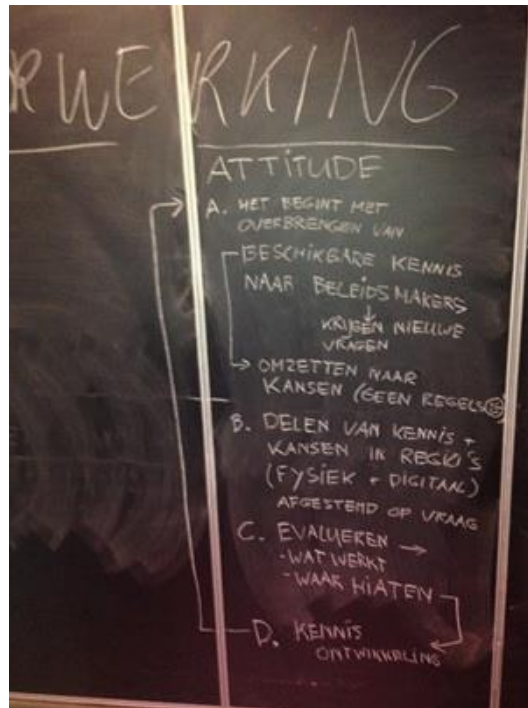 RWERKING
ATTITUDE
A. HET BEGINT MET
OVERBRENGEN VAN
BESCHIKBARE KENNIS
NAAR BELEIDSMAKERS
↓
KRIJGEN NIEUWE
VRAGEN
→ OMZETTEN NAAR
KANSEN (GEEN REGELS)
B. DELEN VAN KENNIS +
KANSEN IN REGIO'S
(FYSIEK + DIGITAAL)
AFGESTEMD OP VRAAG
C. EVALUEREN →
- WAT WERKT
- WAAR HIATEN
D. KENNIS
ONTWIKKELING